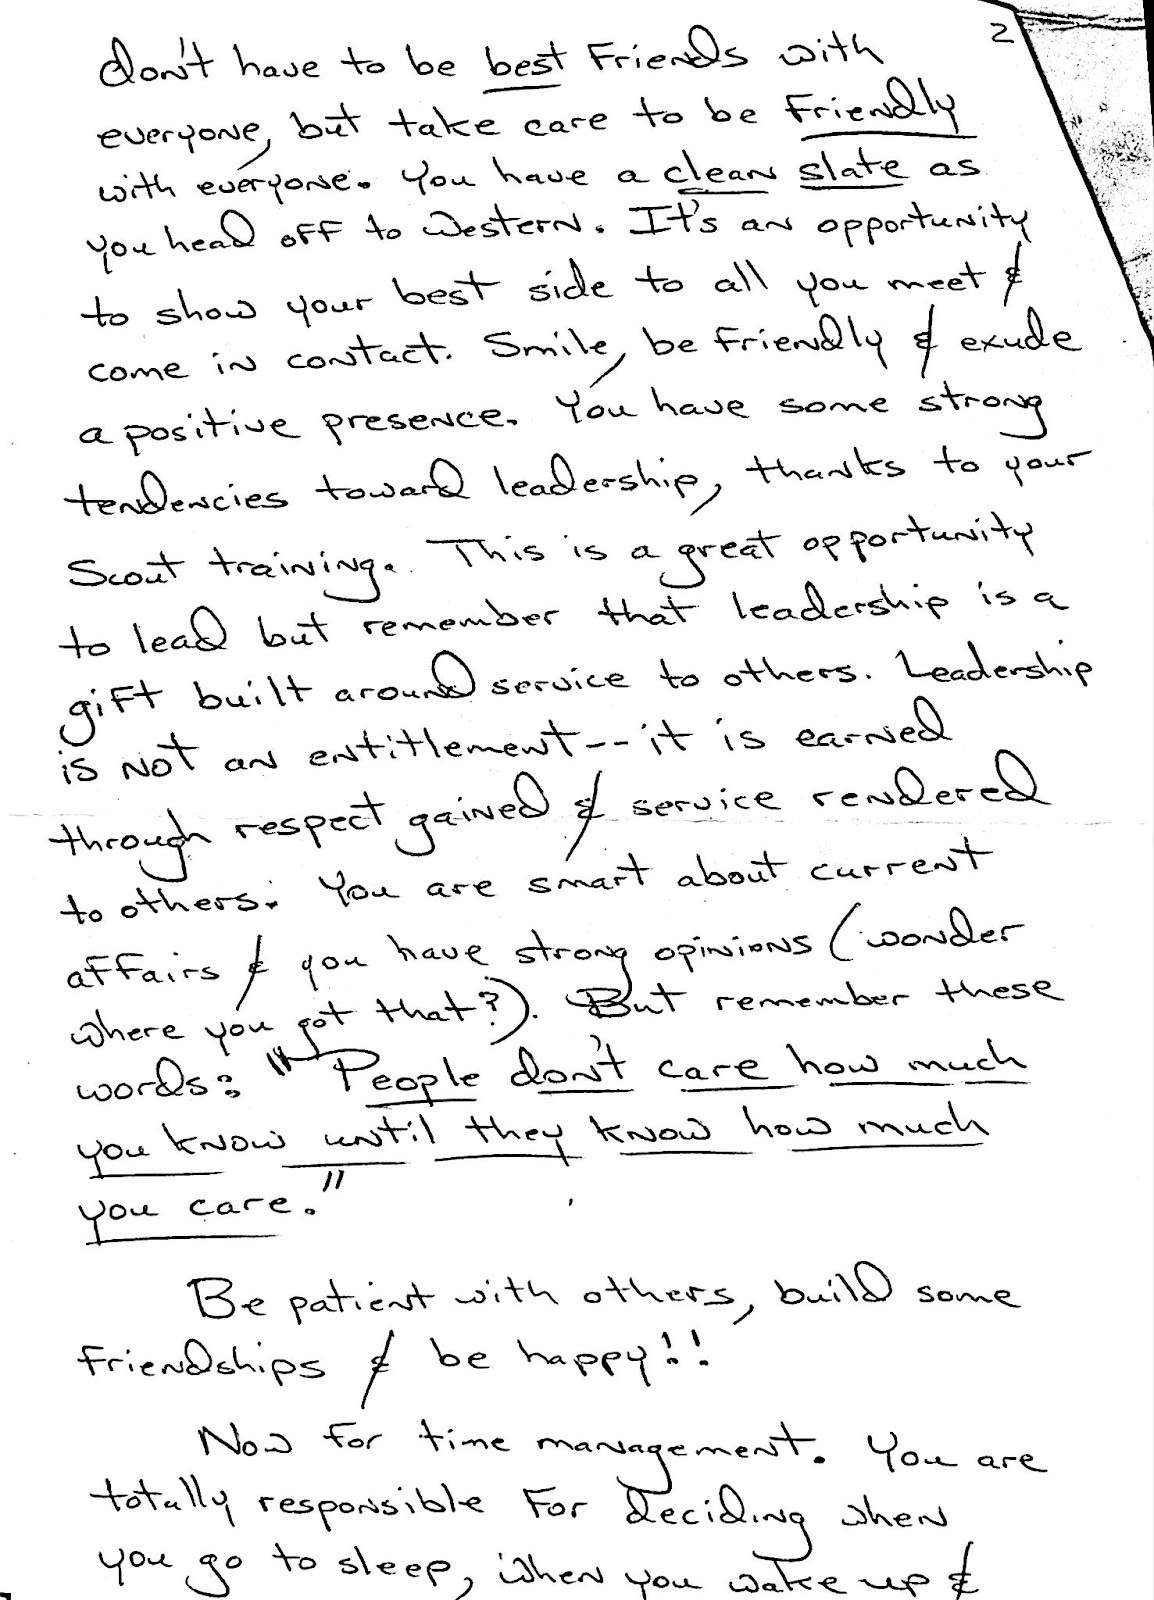 2
don't have to be best friends with
everyone, but take care to be friendly
with everyone. You have a clean slate as
you head off to Western. It's an opportunity
to show your best side to all you meet &
come in contact. Smile, be friendly & exude
a positive presence. You have some strong
tendencies toward leadership, thanks to your
Scout training. This is a great opportunity
to lead but remember that leadership is a
gift built around service to others. Leadership
is not an entitlement -- it is earned
through respect gained & service rendered
to others. You are smart about current
affairs & you have strong opinions (wonder
where you got that?). But remember these
words: "People don't care how much
you know until they know how much
you care."
Be patient with others, build some
friendships & be happy!!
Now for time management. You are
totally responsible for deciding when
you go to sleep, when you wake up &